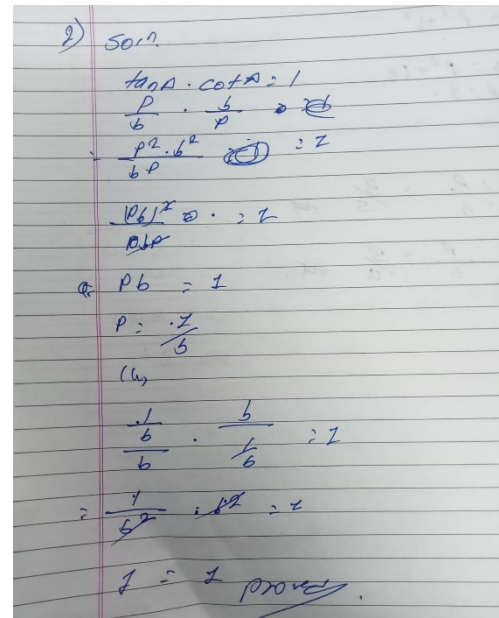 2) Soln
tanA . cotA = 1
p/b . b/p
p² . b² / bp = 1
(pb)² / = 1
pb = 1
p = 1/b
1/b / b . b / 1/b = 1
= 1/b² . b² = 1
1 = 1 proved.